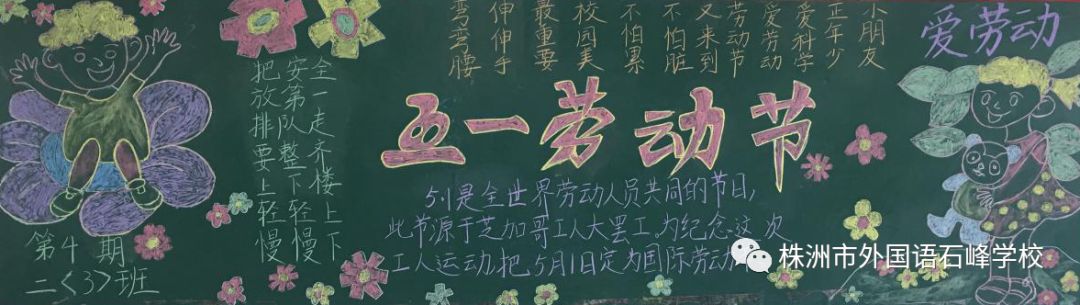 爱劳动
小朋友
正年少
爱科学
爱劳动
劳动节
又来到
不怕脏
不怕累
校园美
最重要
伸伸手
弯弯腰
把安全
放第一
排队走
要整齐
上下楼
轻轻上
慢慢下
五一劳动节
5.1是全世界劳动人员共同的节日,
此节源于芝加哥工人大罢工,为纪念这次
工人运动,把5月1日定为国际劳动
第4期
二<3>班
株洲市外国语石峰学校